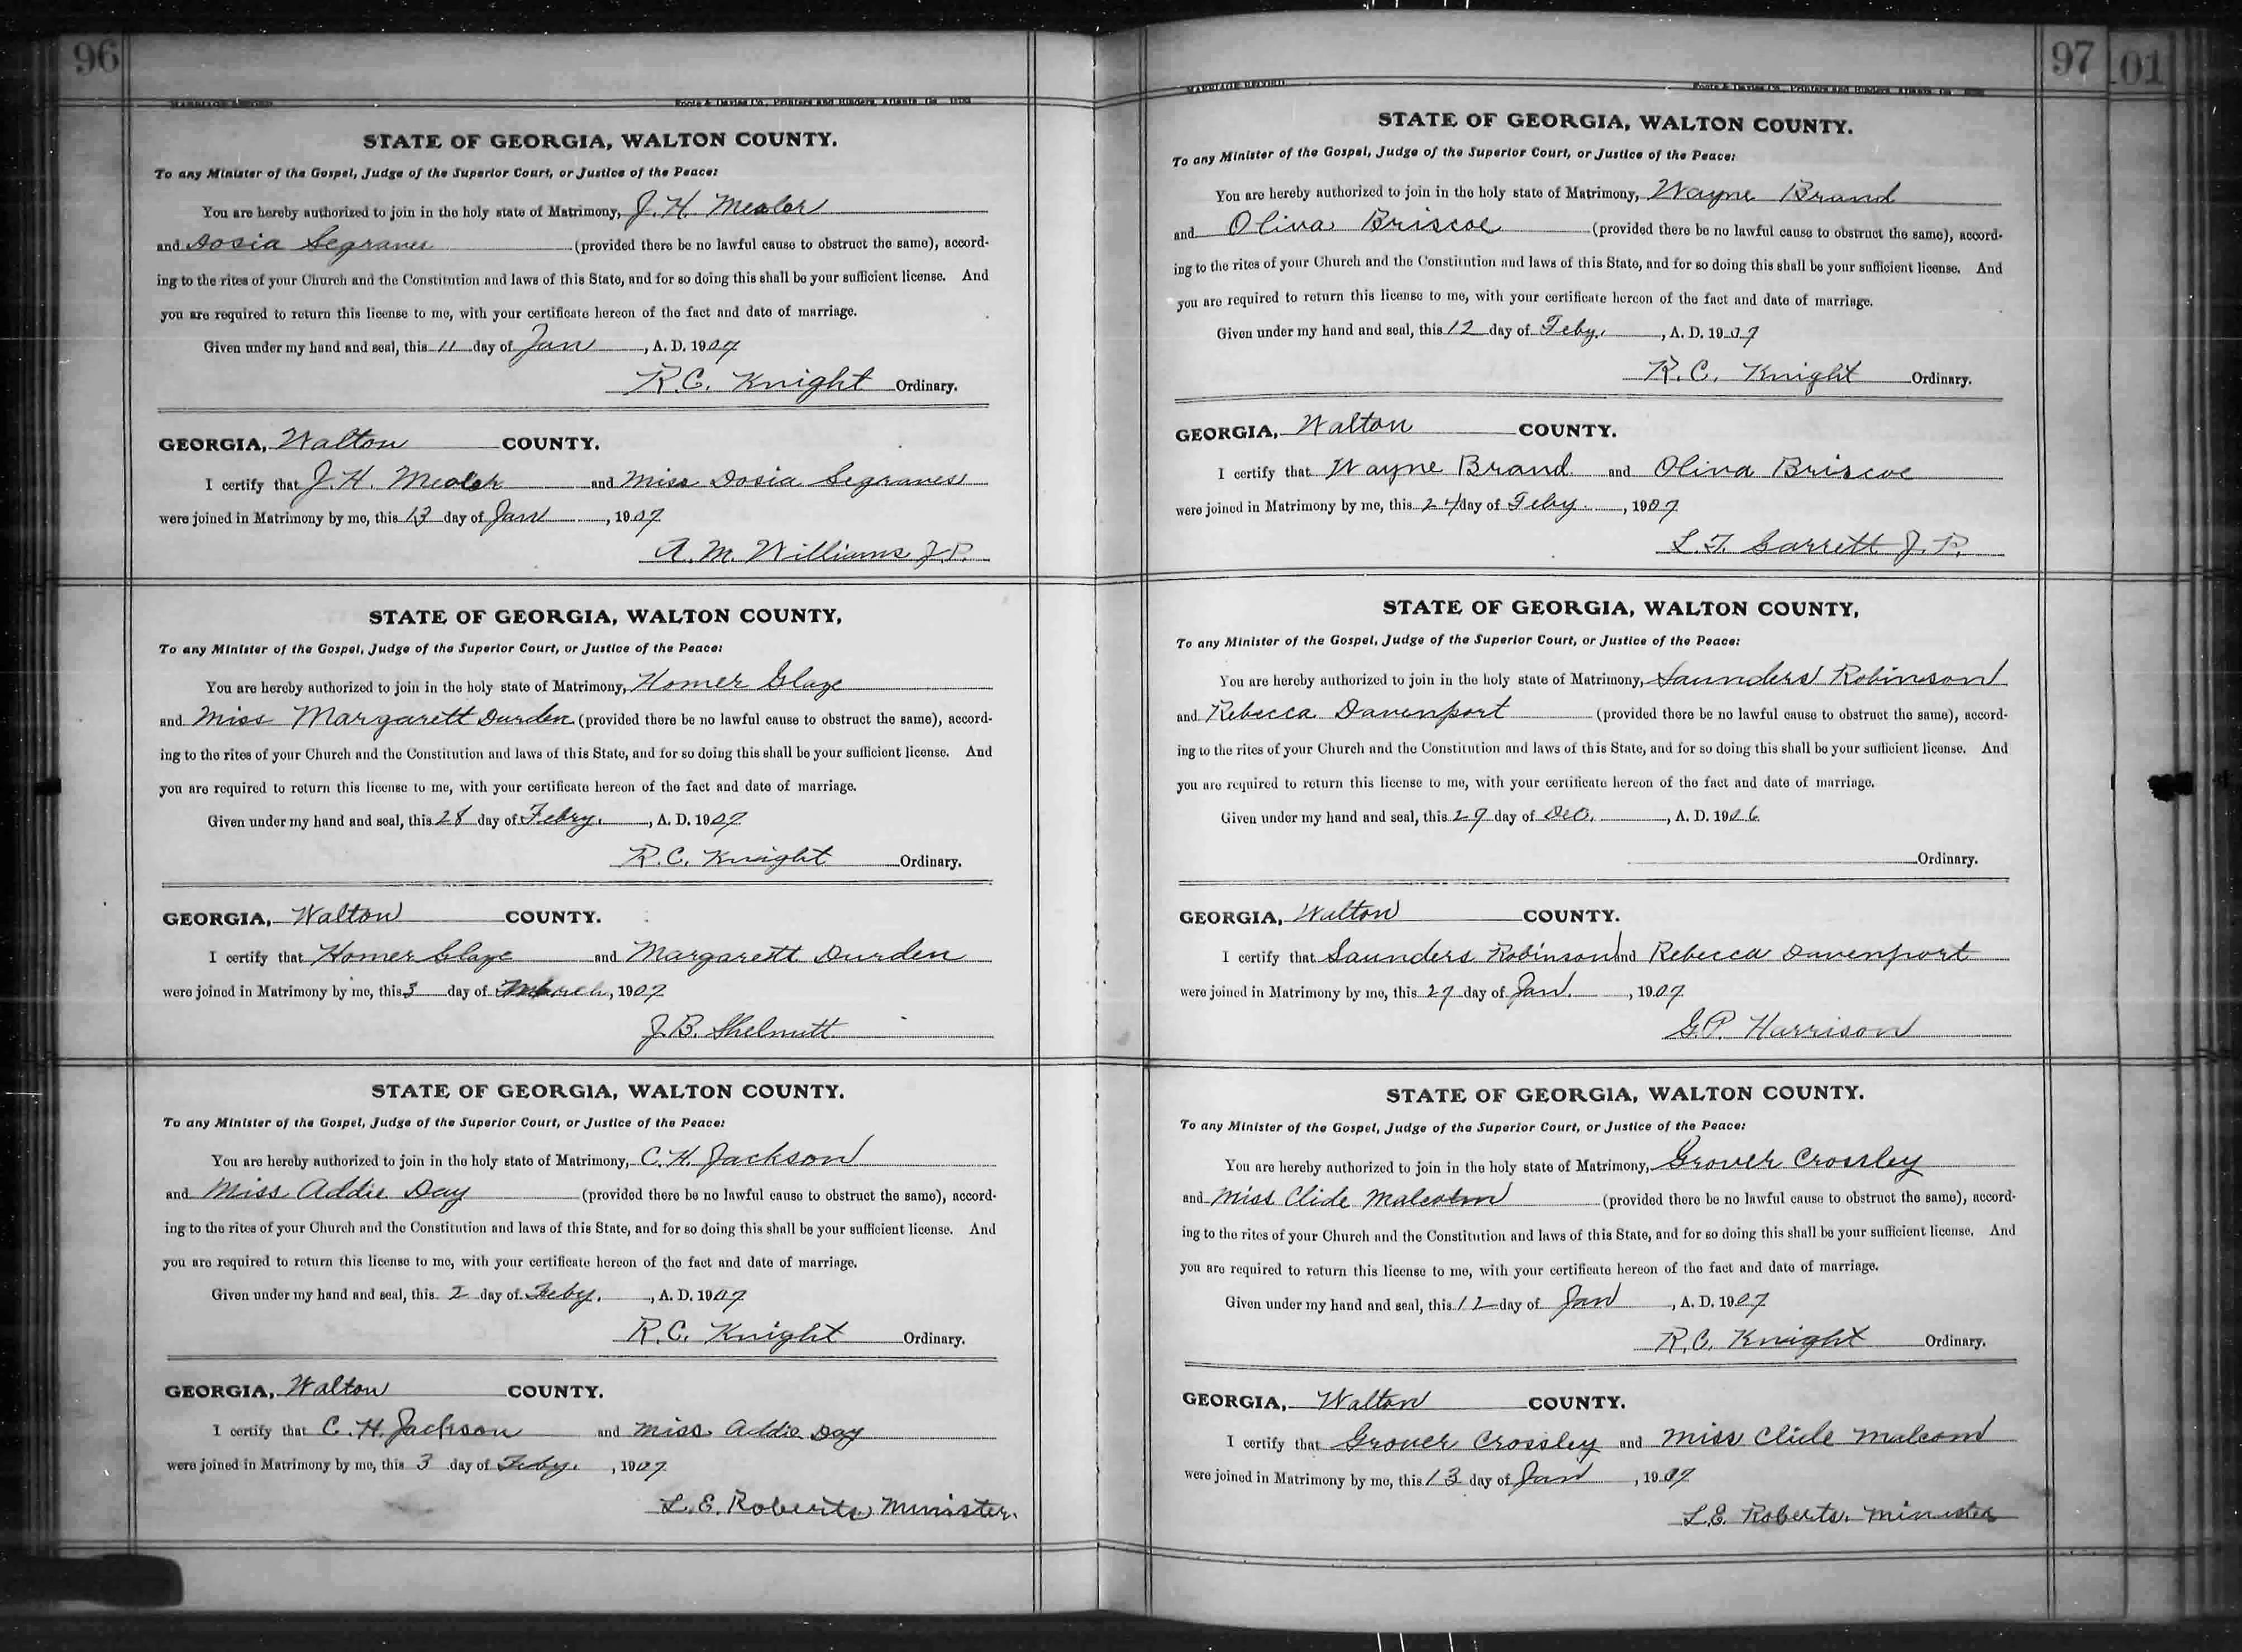 96
MARRIAGE RECORD
Foote & Davies Co., Printers and Binders, Atlanta, Ga.
STATE OF GEORGIA, WALTON COUNTY.
To any Minister of the Gospel, Judge of the Superior Court, or Justice of the Peace:
You are hereby authorized to join in the holy state of Matrimony, J. H. Mealor
and Dosia Segraves (provided there be no lawful cause to obstruct the same), accord-
ing to the rites of your Church and the Constitution and laws of this State, and for so doing this shall be your sufficient license. And
you are required to return this license to me, with your certificate hereon of the fact and date of marriage.
Given under my hand and seal, this 11 day of Jan, A. D. 1907
R. C. Knight Ordinary.
GEORGIA, Walton COUNTY.
I certify that J. H. Mealor and Miss Dosia Segraves
were joined in Matrimony by me, this 13 day of Jan, 1907
A. M. Williams J. P.
STATE OF GEORGIA, WALTON COUNTY,
To any Minister of the Gospel, Judge of the Superior Court, or Justice of the Peace:
You are hereby authorized to join in the holy state of Matrimony, Homer Glaze
and Miss Margarett Durden (provided there be no lawful cause to obstruct the same), accord-
ing to the rites of your Church and the Constitution and laws of this State, and for so doing this shall be your sufficient license. And
you are required to return this license to me, with your certificate hereon of the fact and date of marriage.
Given under my hand and seal, this 28 day of Febry., A. D. 1907
R. C. Knight Ordinary.
GEORGIA, Walton COUNTY.
I certify that Homer Glaze and Margarett Durden
were joined in Matrimony by me, this 3 day of March, 1907
J. B. Shelnutt
STATE OF GEORGIA, WALTON COUNTY.
To any Minister of the Gospel, Judge of the Superior Court, or Justice of the Peace:
You are hereby authorized to join in the holy state of Matrimony, C. H. Jackson
and Miss Addie Day (provided there be no lawful cause to obstruct the same), accord-
ing to the rites of your Church and the Constitution and laws of this State, and for so doing this shall be your sufficient license. And
you are required to return this license to me, with your certificate hereon of the fact and date of marriage.
Given under my hand and seal, this 2 day of Feby., A. D. 1907
R. C. Knight Ordinary.
GEORGIA, Walton COUNTY.
I certify that C. H. Jackson and Miss Addie Day
were joined in Matrimony by me, this 3 day of Feby., 1907
L. E. Roberts Minister.
97
101
MARRIAGE RECORD
Foote & Davies Co., Printers and Binders, Atlanta, Ga.
STATE OF GEORGIA, WALTON COUNTY.
To any Minister of the Gospel, Judge of the Superior Court, or Justice of the Peace:
You are hereby authorized to join in the holy state of Matrimony, Wayne Brand
and Oliva Briscoe (provided there be no lawful cause to obstruct the same), accord-
ing to the rites of your Church and the Constitution and laws of this State, and for so doing this shall be your sufficient license. And
you are required to return this license to me, with your certificate hereon of the fact and date of marriage.
Given under my hand and seal, this 12 day of Feby., A. D. 1907
R. C. Knight Ordinary.
GEORGIA, Walton COUNTY.
I certify that Wayne Brand and Oliva Briscoe
were joined in Matrimony by me, this 24 day of Feby., 1907
L. T. Garrett J. P.
STATE OF GEORGIA, WALTON COUNTY,
To any Minister of the Gospel, Judge of the Superior Court, or Justice of the Peace:
You are hereby authorized to join in the holy state of Matrimony, Saunders Robinson
and Rebecca Davenport (provided there be no lawful cause to obstruct the same), accord-
ing to the rites of your Church and the Constitution and laws of this State, and for so doing this shall be your sufficient license. And
you are required to return this license to me, with your certificate hereon of the fact and date of marriage.
Given under my hand and seal, this 29 day of Dec., A. D. 1906
Ordinary.
GEORGIA, Walton COUNTY.
I certify that Saunders Robinson and Rebecca Davenport
were joined in Matrimony by me, this 27 day of Jan., 1907
G. P. Harrison
STATE OF GEORGIA, WALTON COUNTY.
To any Minister of the Gospel, Judge of the Superior Court, or Justice of the Peace:
You are hereby authorized to join in the holy state of Matrimony, Grover Crossley
and Miss Clide Malcolm (provided there be no lawful cause to obstruct the same), accord-
ing to the rites of your Church and the Constitution and laws of this State, and for so doing this shall be your sufficient license. And
you are required to return this license to me, with your certificate hereon of the fact and date of marriage.
Given under my hand and seal, this 12 day of Jan, A. D. 1907
R. C. Knight Ordinary.
GEORGIA, Walton COUNTY.
I certify that Grover Crossley and Miss Clide Malcom
were joined in Matrimony by me, this 13 day of Jan, 1907
L. E. Roberts. Minister